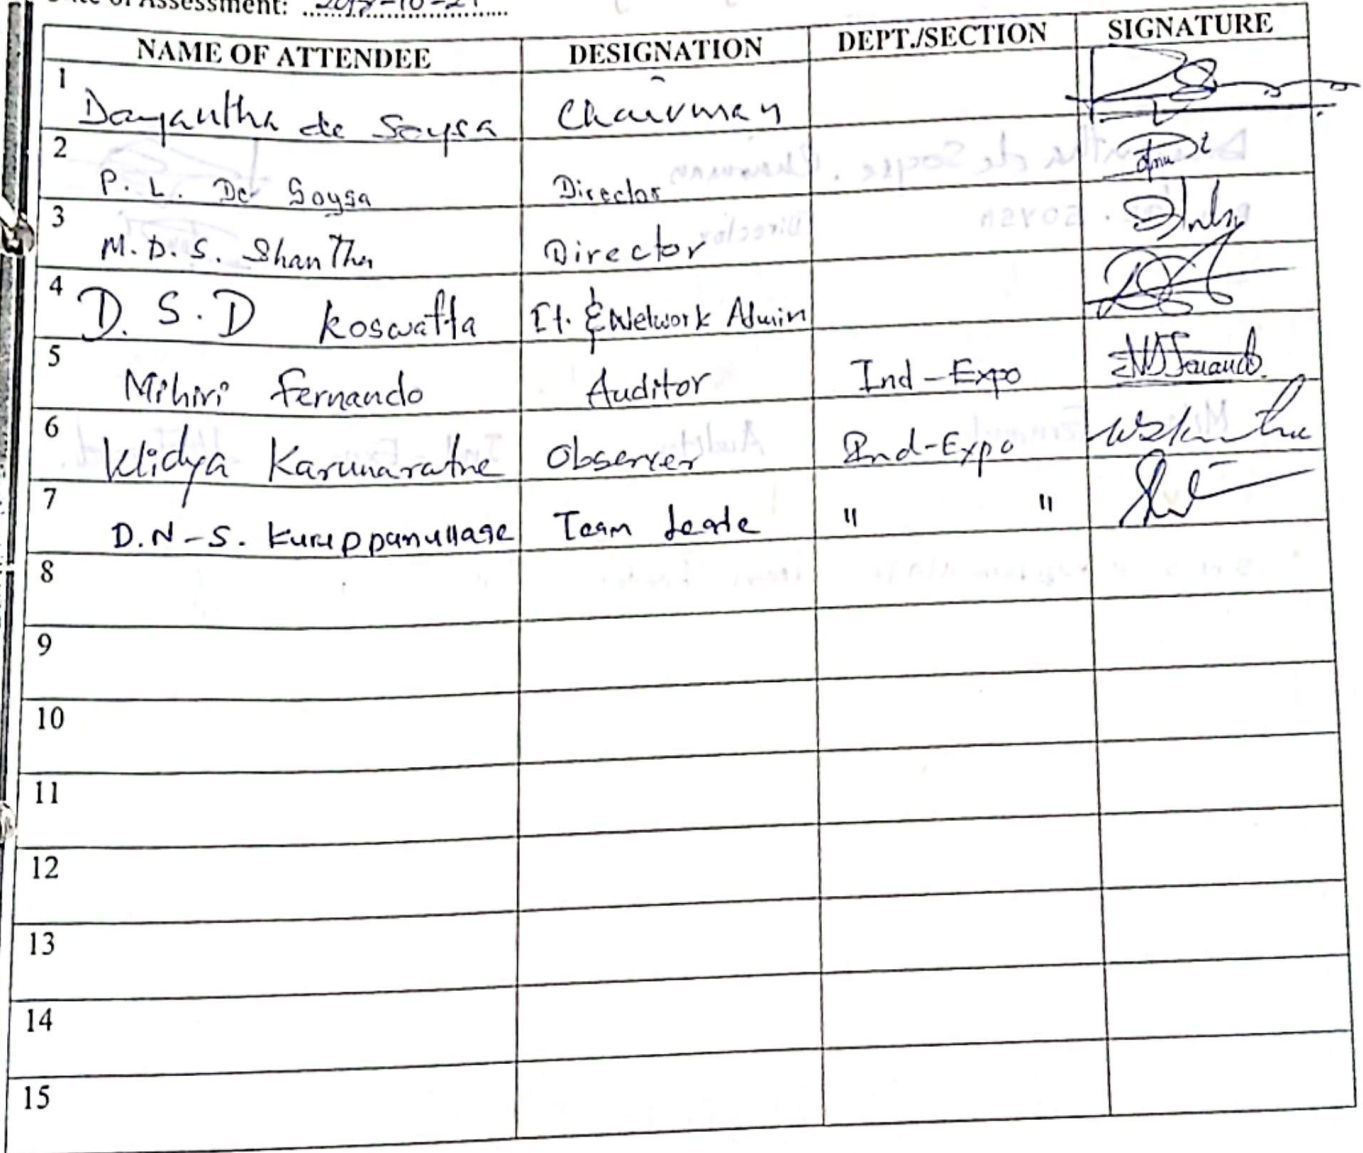 of Assessment:
NAME OF ATTENDEE DESIGNATION DEPT./SECTION SIGNATURE
1 Dayantha de Soysa Chairman
2 P. L. De Soysa Director
3 M.D.S. Shantha Director
4 D. S. D Koswatta It. & Network Admin
5 Mihiri Fernando Auditor Ind-Expo
6 Vidya Karunarathne Observer Ind-Expo
7 D.N-S. Kuruppanullage Team Leade " "
8
9
10
11
12
13
14
15